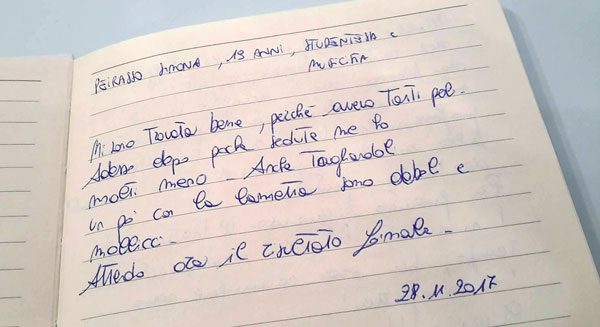 PEIRASSO SIMONA, 19 ANNI, STUDENTESSA E
MODELLA
Mi sono trovata bene, perché avevo tanti peli.
Adesso dopo poche sedute ne ho
molti meno - Anche tagliandoli
un pò con la lametta sono deboli e
mollicci.
Attendo ora il risultato finale.
28.11.2017